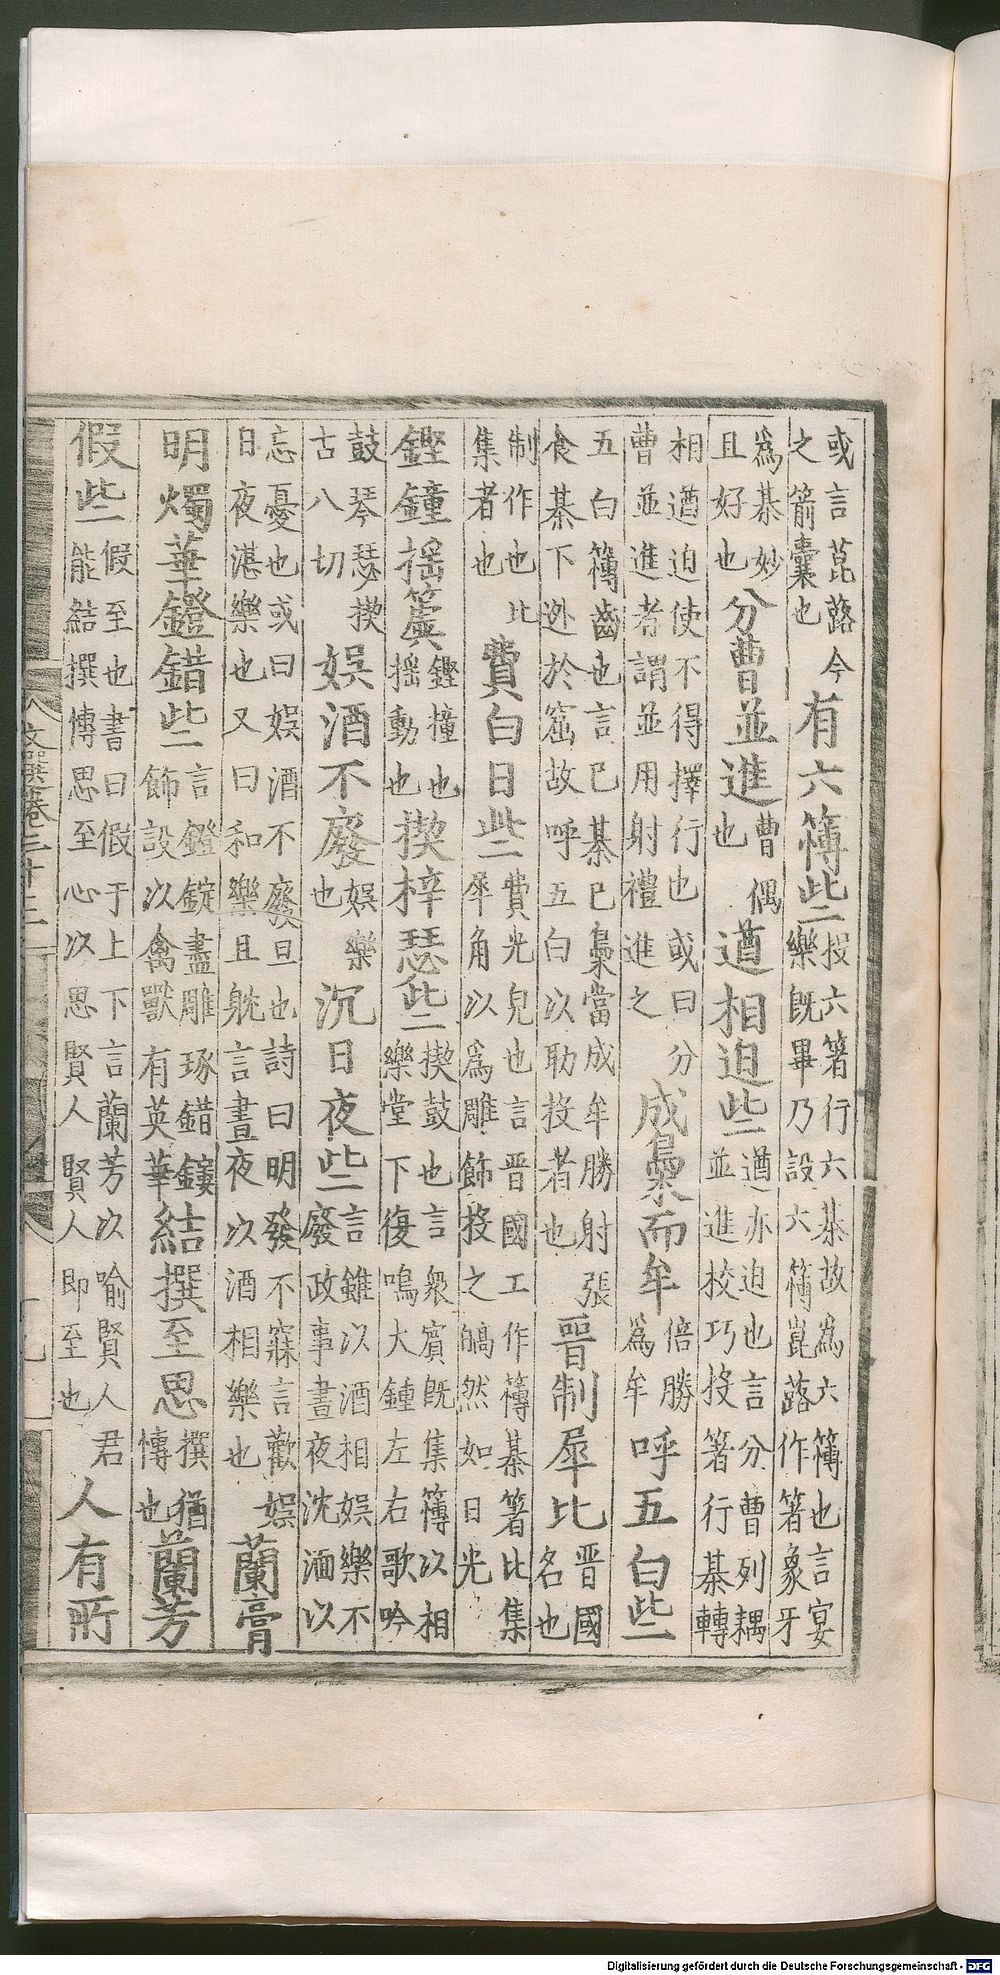 或言菎蕗今
之箭囊也
有六簿些
投六箸行六棊故爲六簿也言宴
樂旣畢乃設六簿崑蕗作箸象牙
爲棊妙
且好也
分曹並進
曹偶
也
遒相迫些
遒亦迫也言分曹列耦
並進校巧投箸行棊轉
相遒迫使不得擇行也或曰分
曹並進者謂並用射禮進之
成梟而牟
倍勝
爲牟
呼五白些
五白簿齒也言已棊已梟當成牟勝射張
食棊下迯於窟故呼五白以助投者也
晉制犀比
晉國
名也
制作也比
集者也
費白日些
費光皃也言晉國工作簿棊箸比集
犀角以爲雕飾投之皜然如日光
鏗鐘搖簴
鏗撞也
搖動也
揳梓瑟些
揳鼓也言衆賓旣集簿以相
樂堂下復鳴大鍾左右歌吟
鼓琴瑟揳
古八切
娛酒不廢
娛樂
也
沉日夜些
言雖以酒相娛樂不
廢政事晝夜沈湎以
忘憂也或曰娛酒不廢旦也詩曰明發不寐言歡娛
日夜湛樂也又曰和樂且躭言晝夜以酒相樂也
蘭膏
明燭華鐙錯些
言鐙錠盡雕琢錯鏤
飾設以禽獸有英華
結撰至思
撰猶
愽也
蘭芳
假些
假至也書曰假于上下言蘭芳以喻賢人君
能結撰愽思至心以思賢人賢人即至也
人有所
文選卷三十三
Digitalisierung gefördert durch die Deutsche Forschungsgemeinschaft - DFG